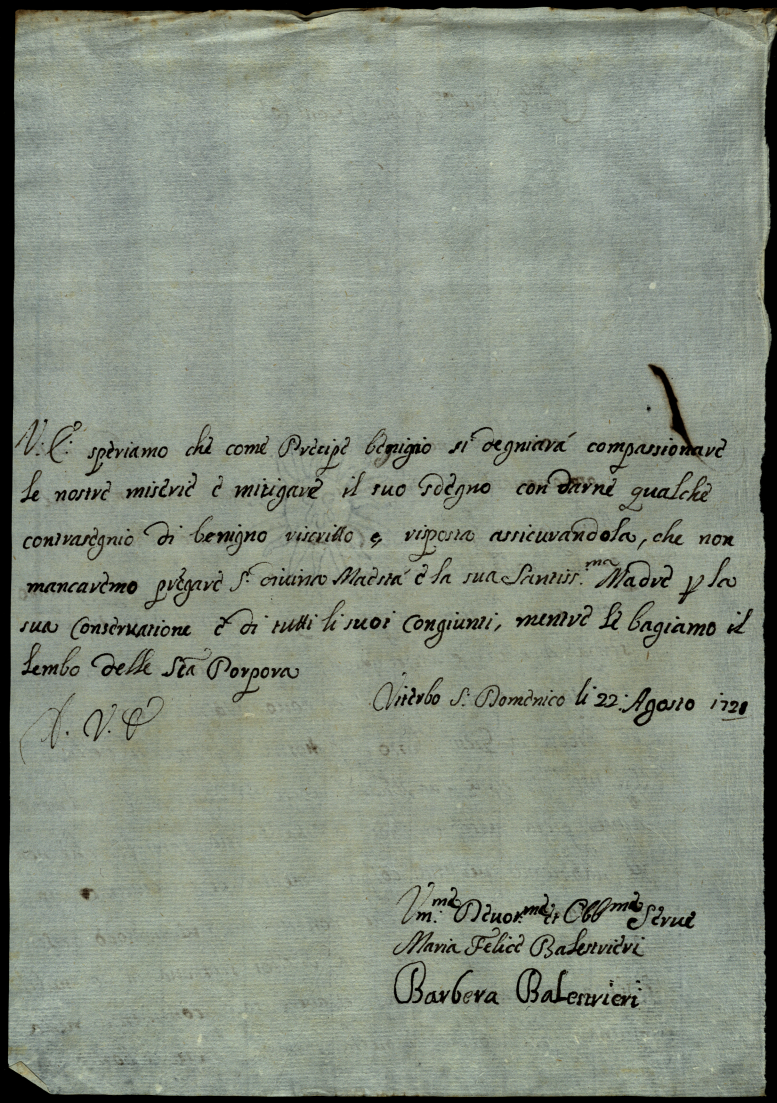 V: E: speriamo che come Precipe benigio si degniará compassionare
le nostre miserie e mitigare il suo sdegno con darne qualche
contrasegnio di benigno riscritto e, risposta assicurandola, che non
mancaremo pregare S. divina Maestá e la sua Santiss.ma Madre p la
sua Conservatione e di tutti li suoi Congiunti, mentre le bagiamo il
lembo delle Sta Porpora
Viterbo S. Domenico li 22: Agosto 1720
D. V. E
Vm:me Deuot.me et Obb.me Serue
Maria Felice Balestrieri
Barbera Balestrieri